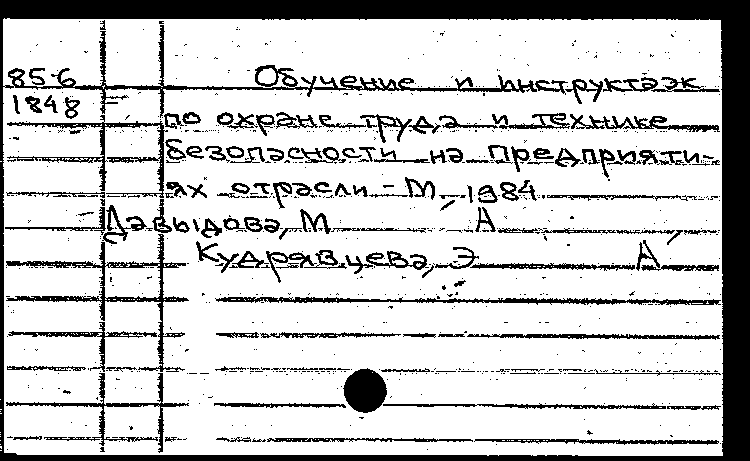 85-6 Обучение и инструктаж
1848 по охране труда и технике
безопасности на предприяти-
ях отрасли - М. 1984
Давыдова, М А
Кудрявцева, Э А